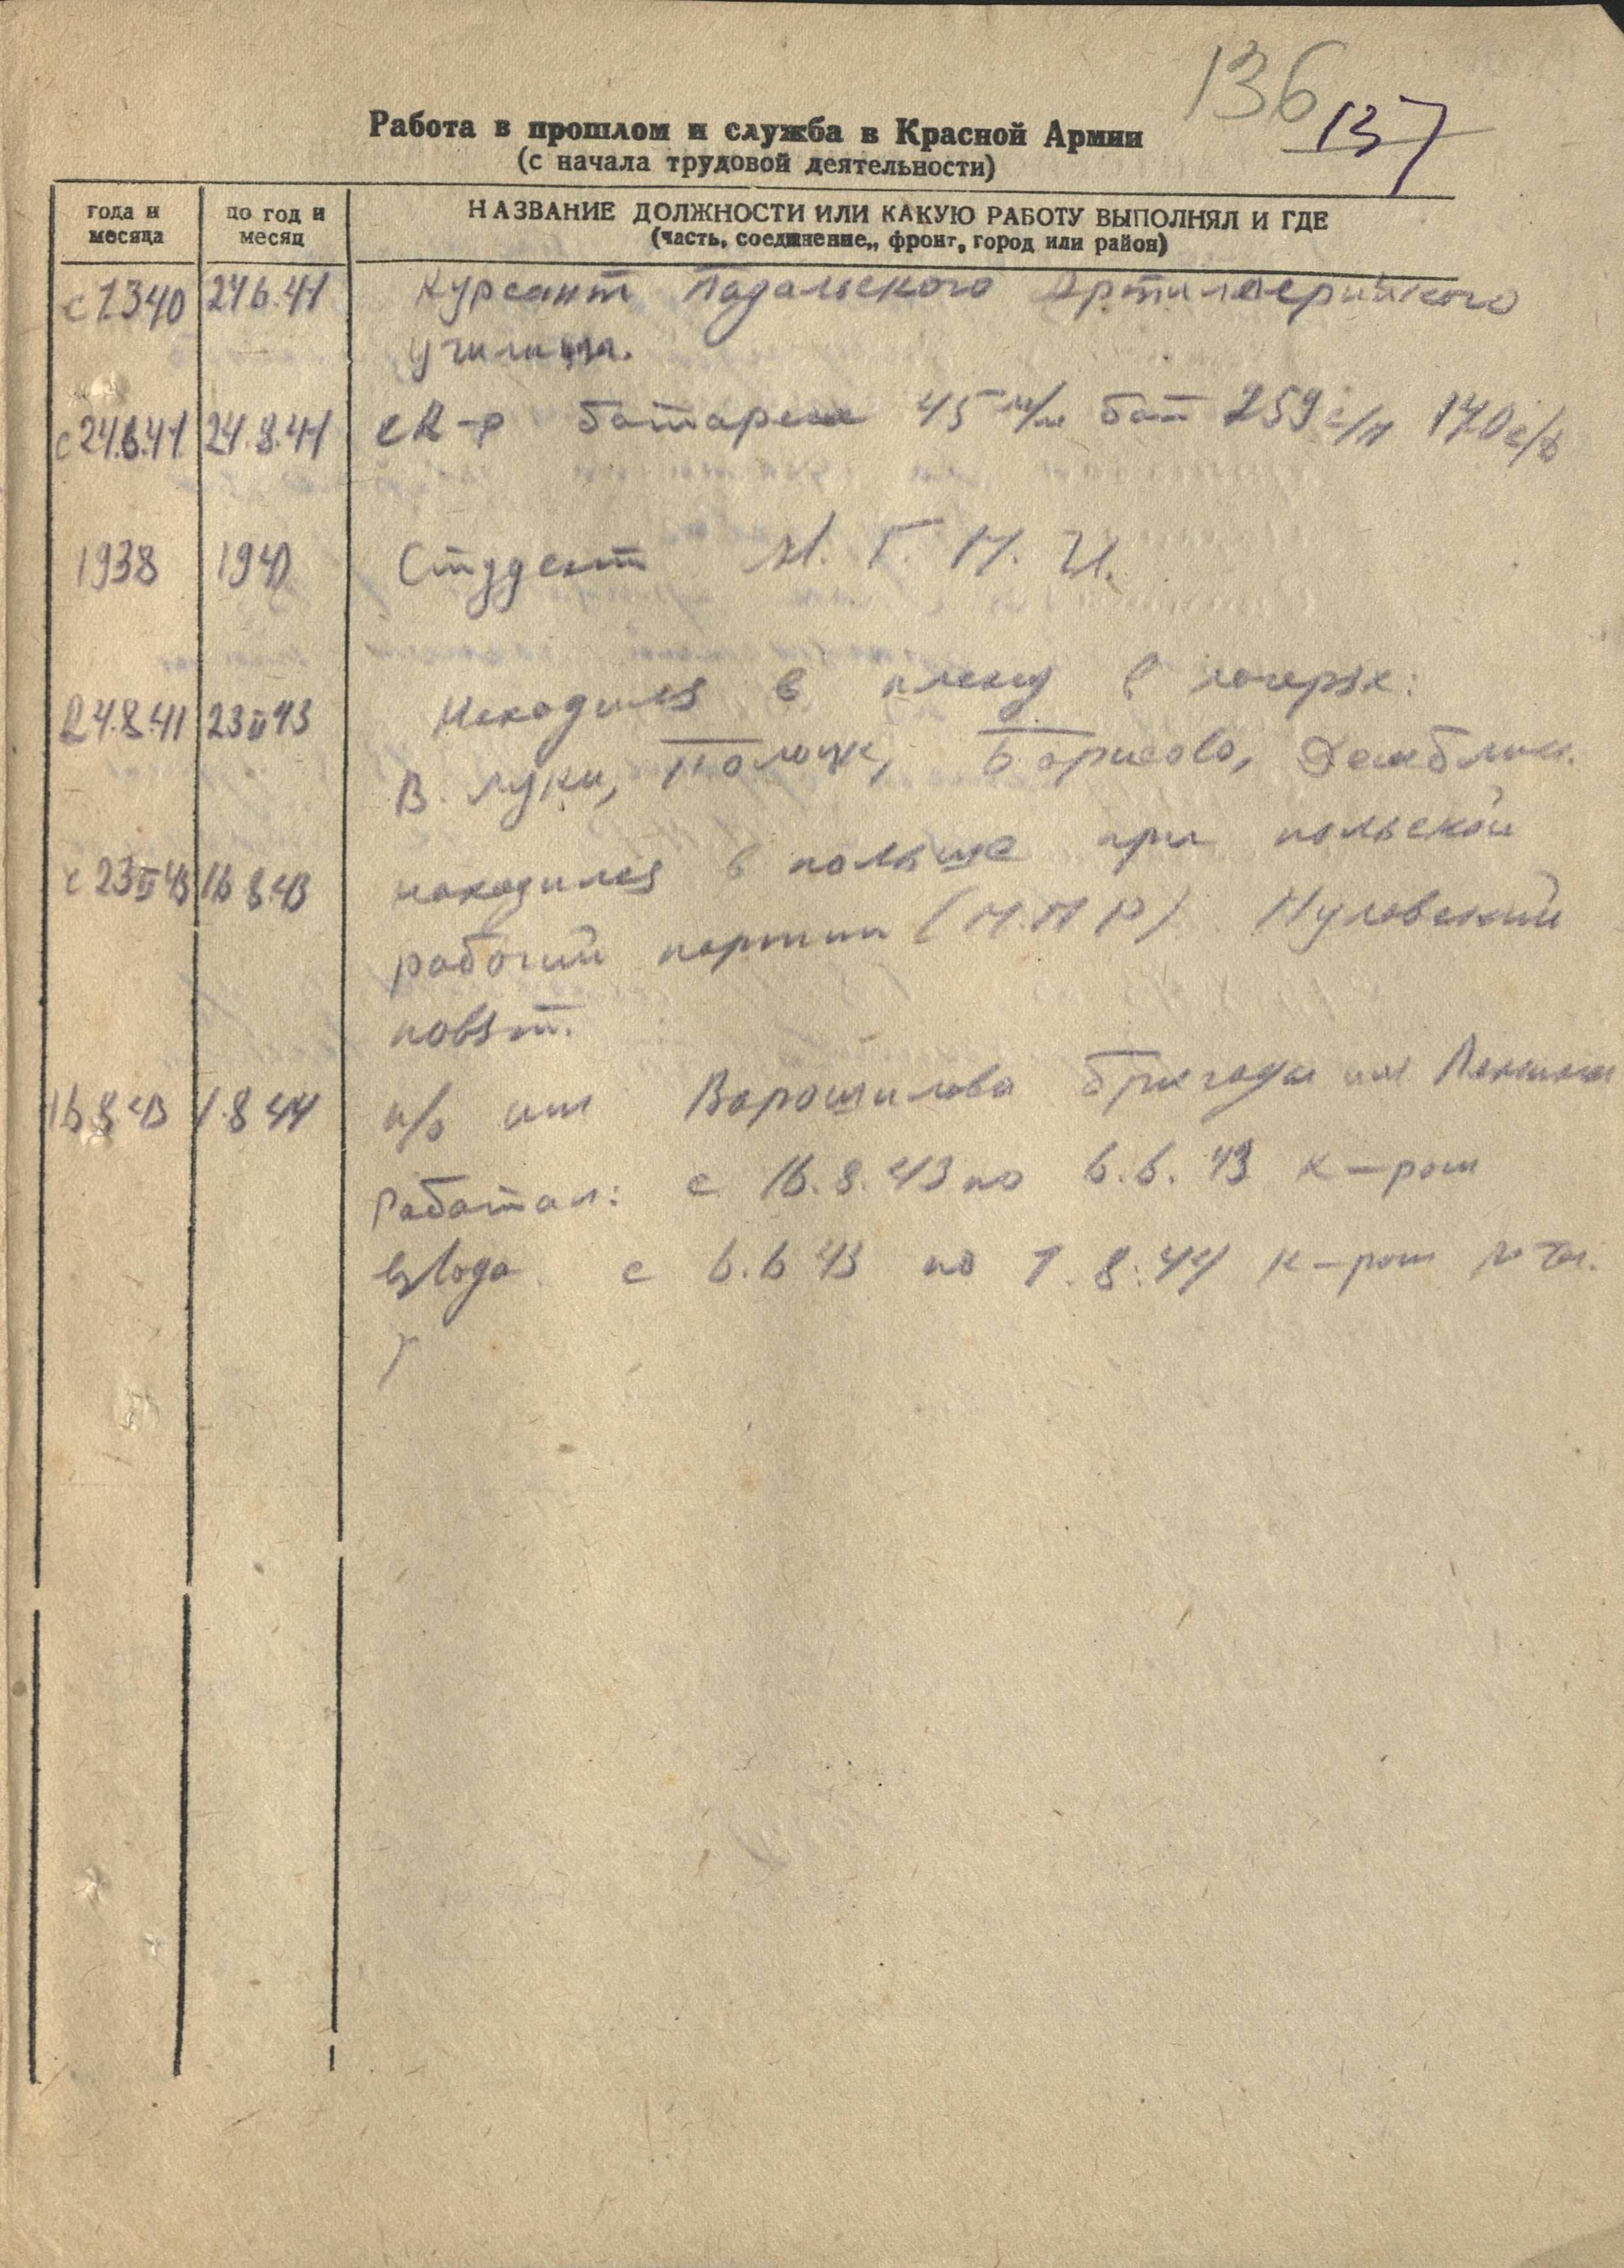 136
137
Работа в прошлом и служба в Красной Армии
(с начала трудовой деятельности)
года и месяца
до год и месяц
НАЗВАНИЕ ДОЛЖНОСТИ ИЛИ КАКУЮ РАБОТУ ВЫПОЛНЯЛ И ГДЕ
(часть, соединение,, фронт, город или район)
с 1340 24 6.41 Курсант Падальского Артилерийского
училища.
с 24.6.41 24.8.41 батареи 45 м/м бат 259 с/п 170 с/д
1938 1940 Студент М. Г. П. И.
24.8.41 23 II 43 Находился в плену в лагерях:
В. Луки, Полоцк, Борисово, Демблин.
с 23 II 43 16 8.43 находился в польше при польской
рабочий партии (П.П.Р) Пуловский
повят.
16 8 43 1.8 44 п/о им Ворошилова бригады им Ленина
Работал: с 16.8.43 по 6.6.43 к-ром
взвода с 6.6 43 по 1.8.44 к-ром роты.